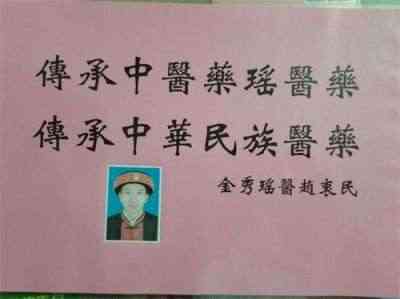 傳承中醫藥瑶醫藥
傳承中華民族醫藥
金秀瑶醫趙衷民